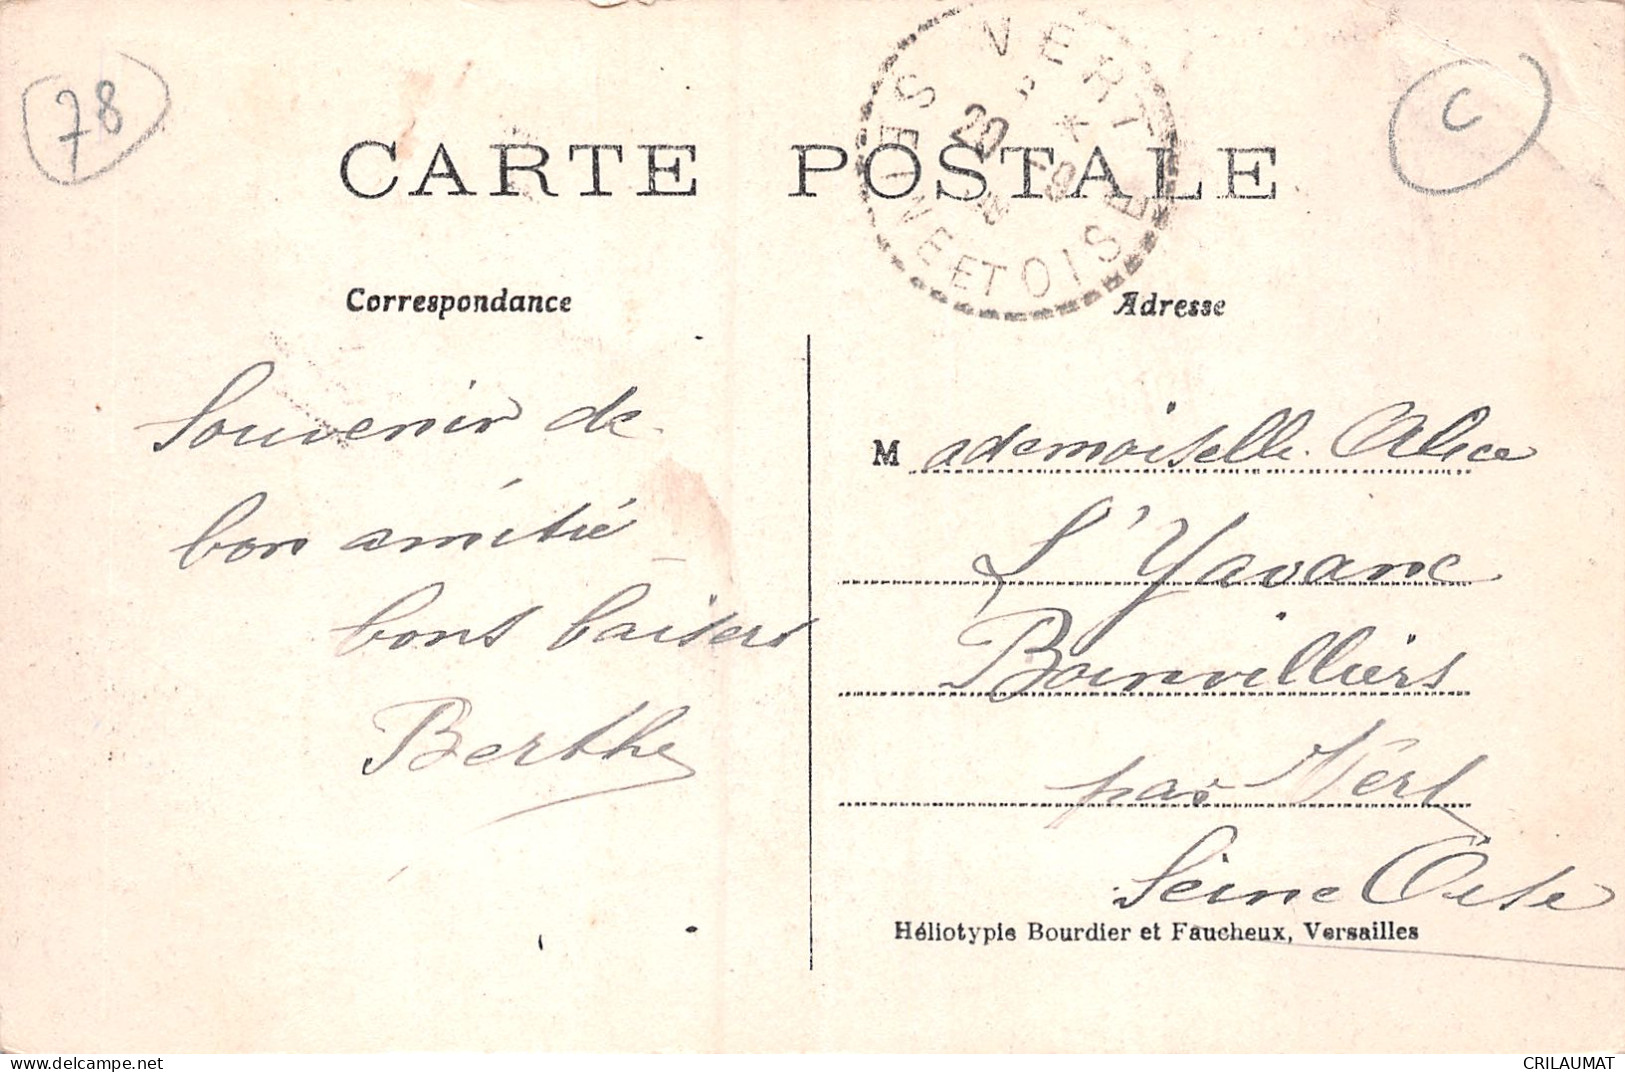 78
C
CARTE POSTALE
VERT
20
SEINE ET OISE
Correspondance
Adresse
Souvenir de
bon amitié
bons baisers
Berthe
Mademoiselle Alice
L'Yavanc
Boinvilliers
par Vert
Seine Oise
Héliotypie Bourdier et Faucheux, Versailles
www.delcampe.net
CRILAUMAT